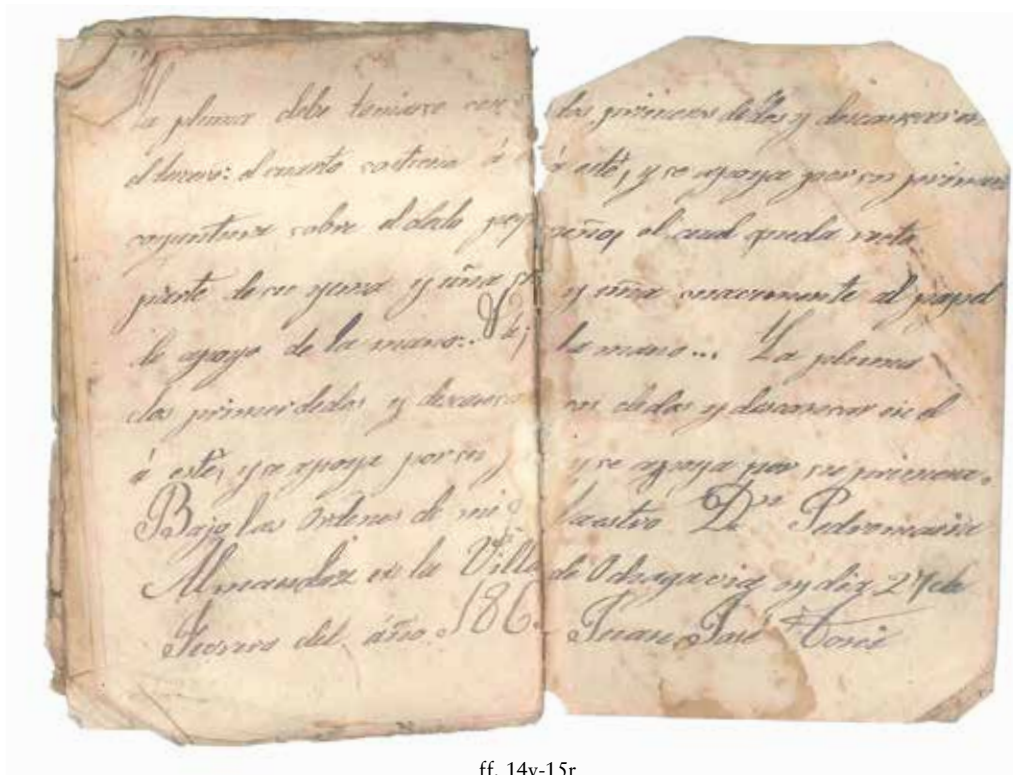 La pluma debe tenerse con los primeros dedos y descansar en
el tercero: el cuarto sostiene á este, y se apoya por su primera
coyuntura sobre el dedo pequeño, el cual queda
parte de su yema y uña y uña suavemente al papel
de apoyo de la mano: la mano... La pluma
dos primer dedos, y descansa en dedos y descansar en el
á este, y se apoya por su y se apoya por su primera.
Bajo las Ordenes de mi Maestro Dn Pedromaria
Almandoz en la Villa de Ochagavia oy dia 27 de
Febrero del año 186 Juan José
ff. 14v-15r